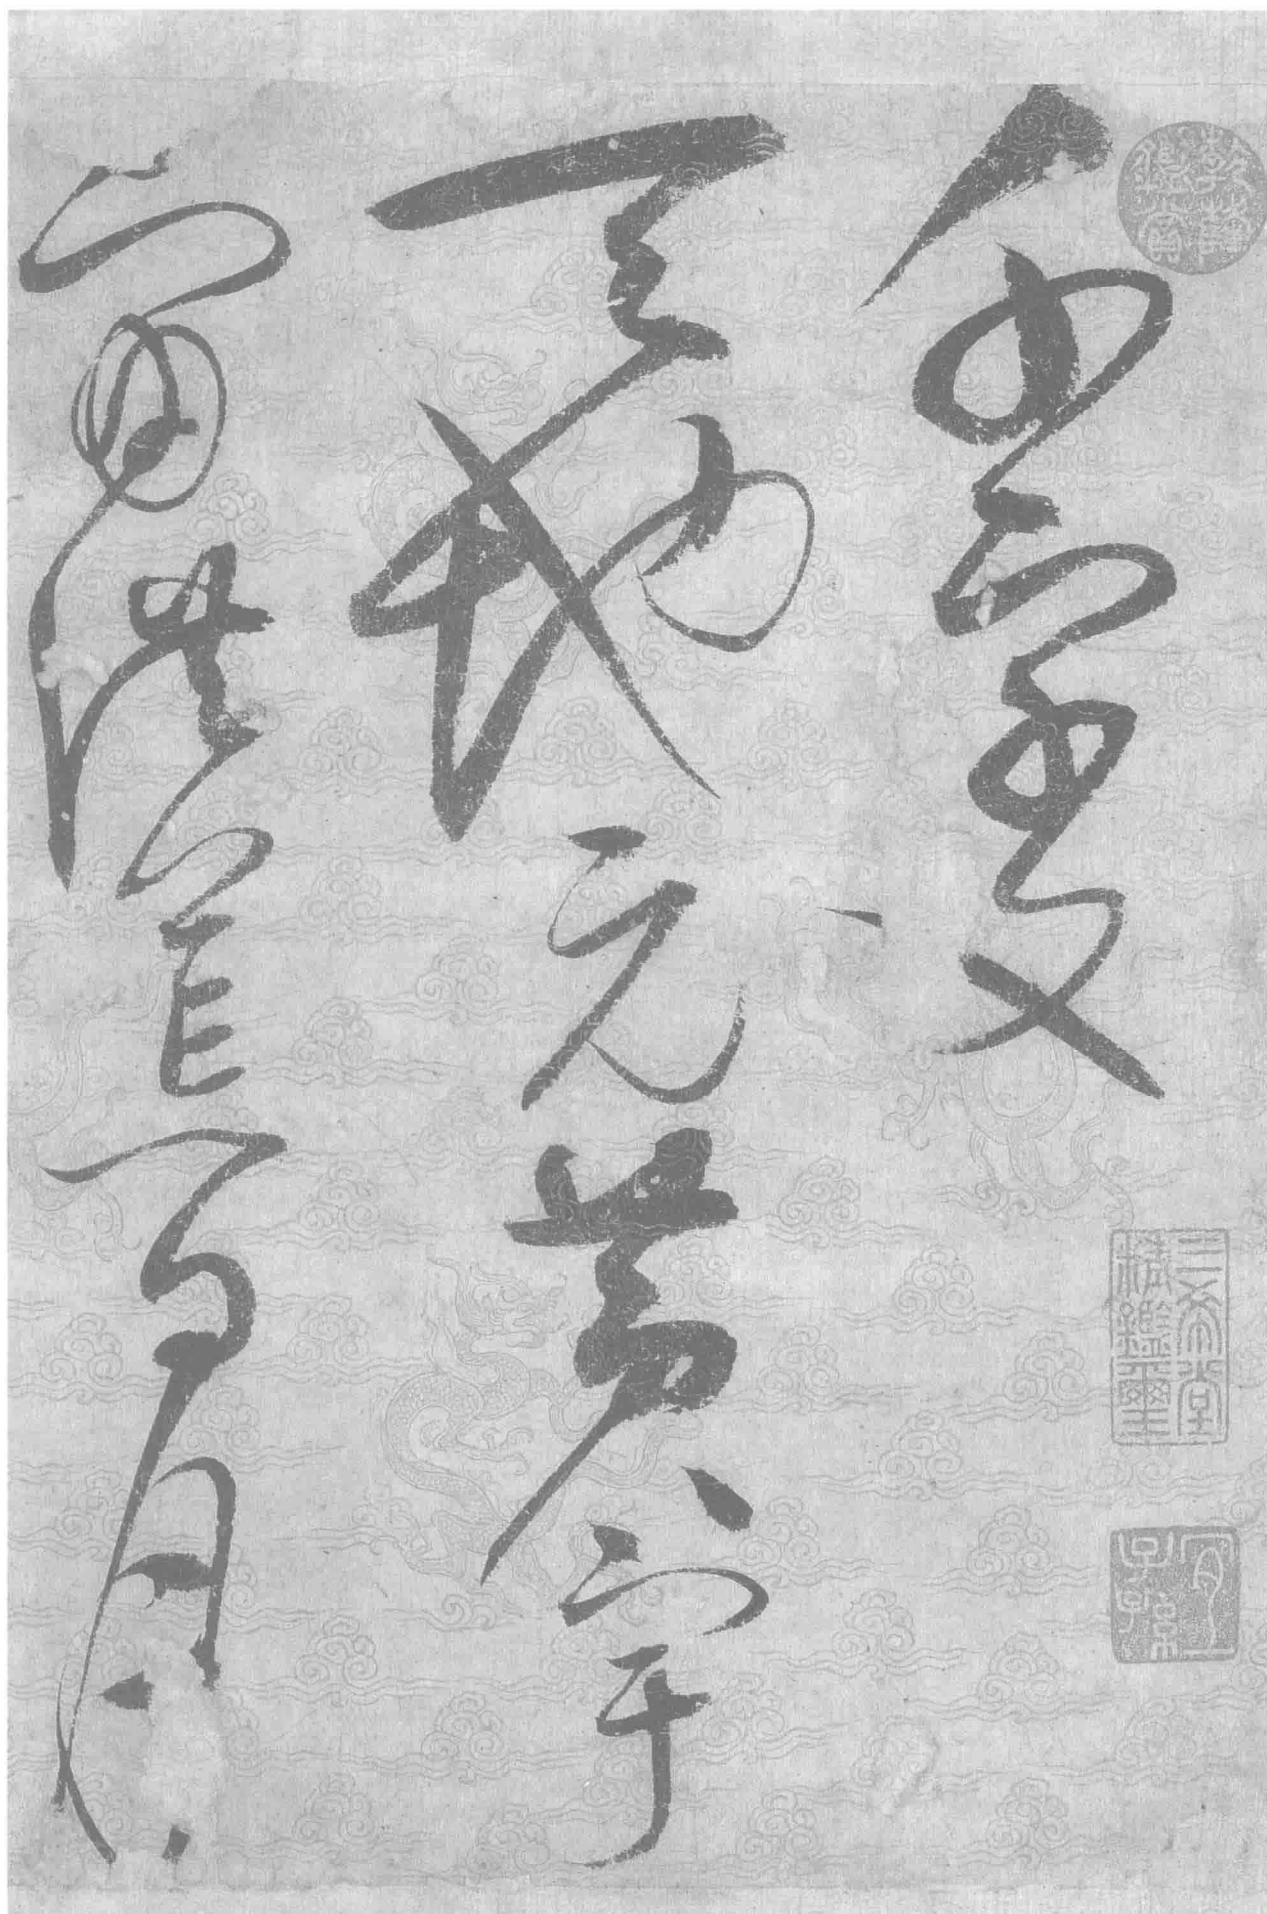 千字文
天地元黃宇
宙洪荒日月
乾隆鑑賞
三希堂精鑑璽
宜子孫